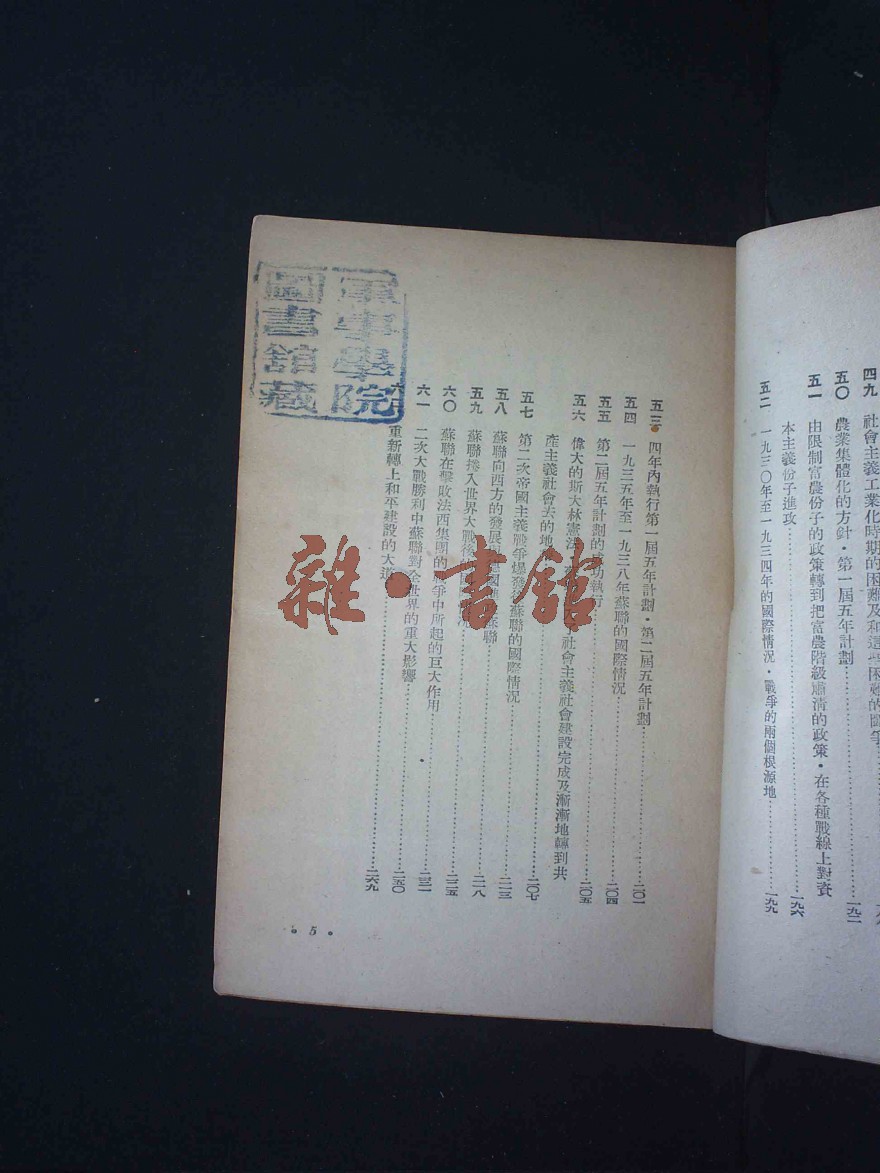 四九 社會主義工業化時期的困難及和這些困難的鬥爭
五〇 農業集體化的方針·第一屆五年計劃……一九二
五一 由限制富農份子的政策轉到把富農階級肅清的政策·在各種戰線上對資
本主義份子進攻……一九六
五二 一九三〇年至一九三四年的國際情況·戰爭的兩個根源地……一九九
五三 四年內執行第一屆五年計劃·第二屆五年計劃……二〇一
五四 一九三五年至一九三八年蘇聯的國際情況……二〇四
五五 第二屆五年計劃的成功執行……二〇五
五六 偉大的斯大林憲法 社會主義社會建設完成及漸漸地轉到共
產主義社會去的地……二〇七
五七 第二次帝國主義戰爭爆發後蘇聯的國際情況……二一三
五八 蘇聯向西方的發展 蘇聯……二一八
五九 蘇聯捲入世界大戰後……二二五
六〇 蘇聯在擊敗法西集團的戰爭中所起的巨大作用……二三一
六一 二次大戰勝利中蘇聯對全世界的重大影響……二五〇
重新轉上和平建設的大道……二六九
·5·
軍事學院
圖書館藏
雜·書館